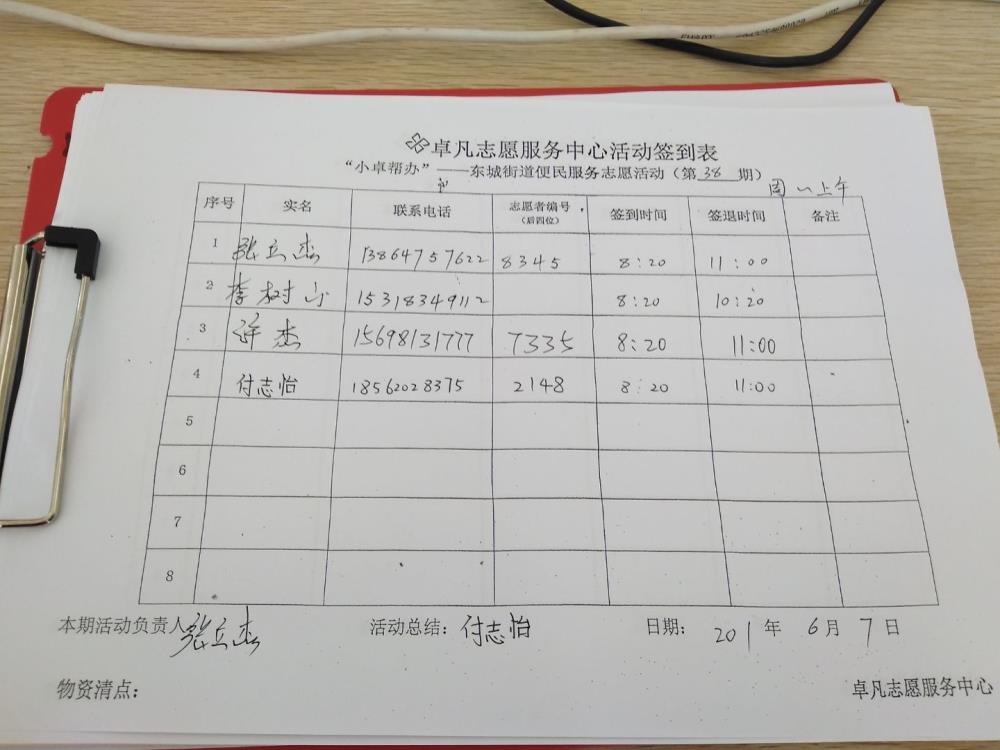 卓凡志愿服务中心活动签到表
“小卓帮办”——东城街道便民服务志愿活动(第38期)
周一上午
序号 实名 联系电话 志愿者编号(后四位) 签到时间 签退时间 备注
1 张立杰 13864757622 8345 8:20 11:00
2 李树山 15318349112 8:20 10:20
3 许杰 15698131777 7335 8:20 11:00
4 付志怡 18562028375 2148 8:20 11:00
5
6
7
8
本期活动负责人 张立杰 活动总结:付志怡 日期: 201 年 6月 7日
物资清点: 卓凡志愿服务中心